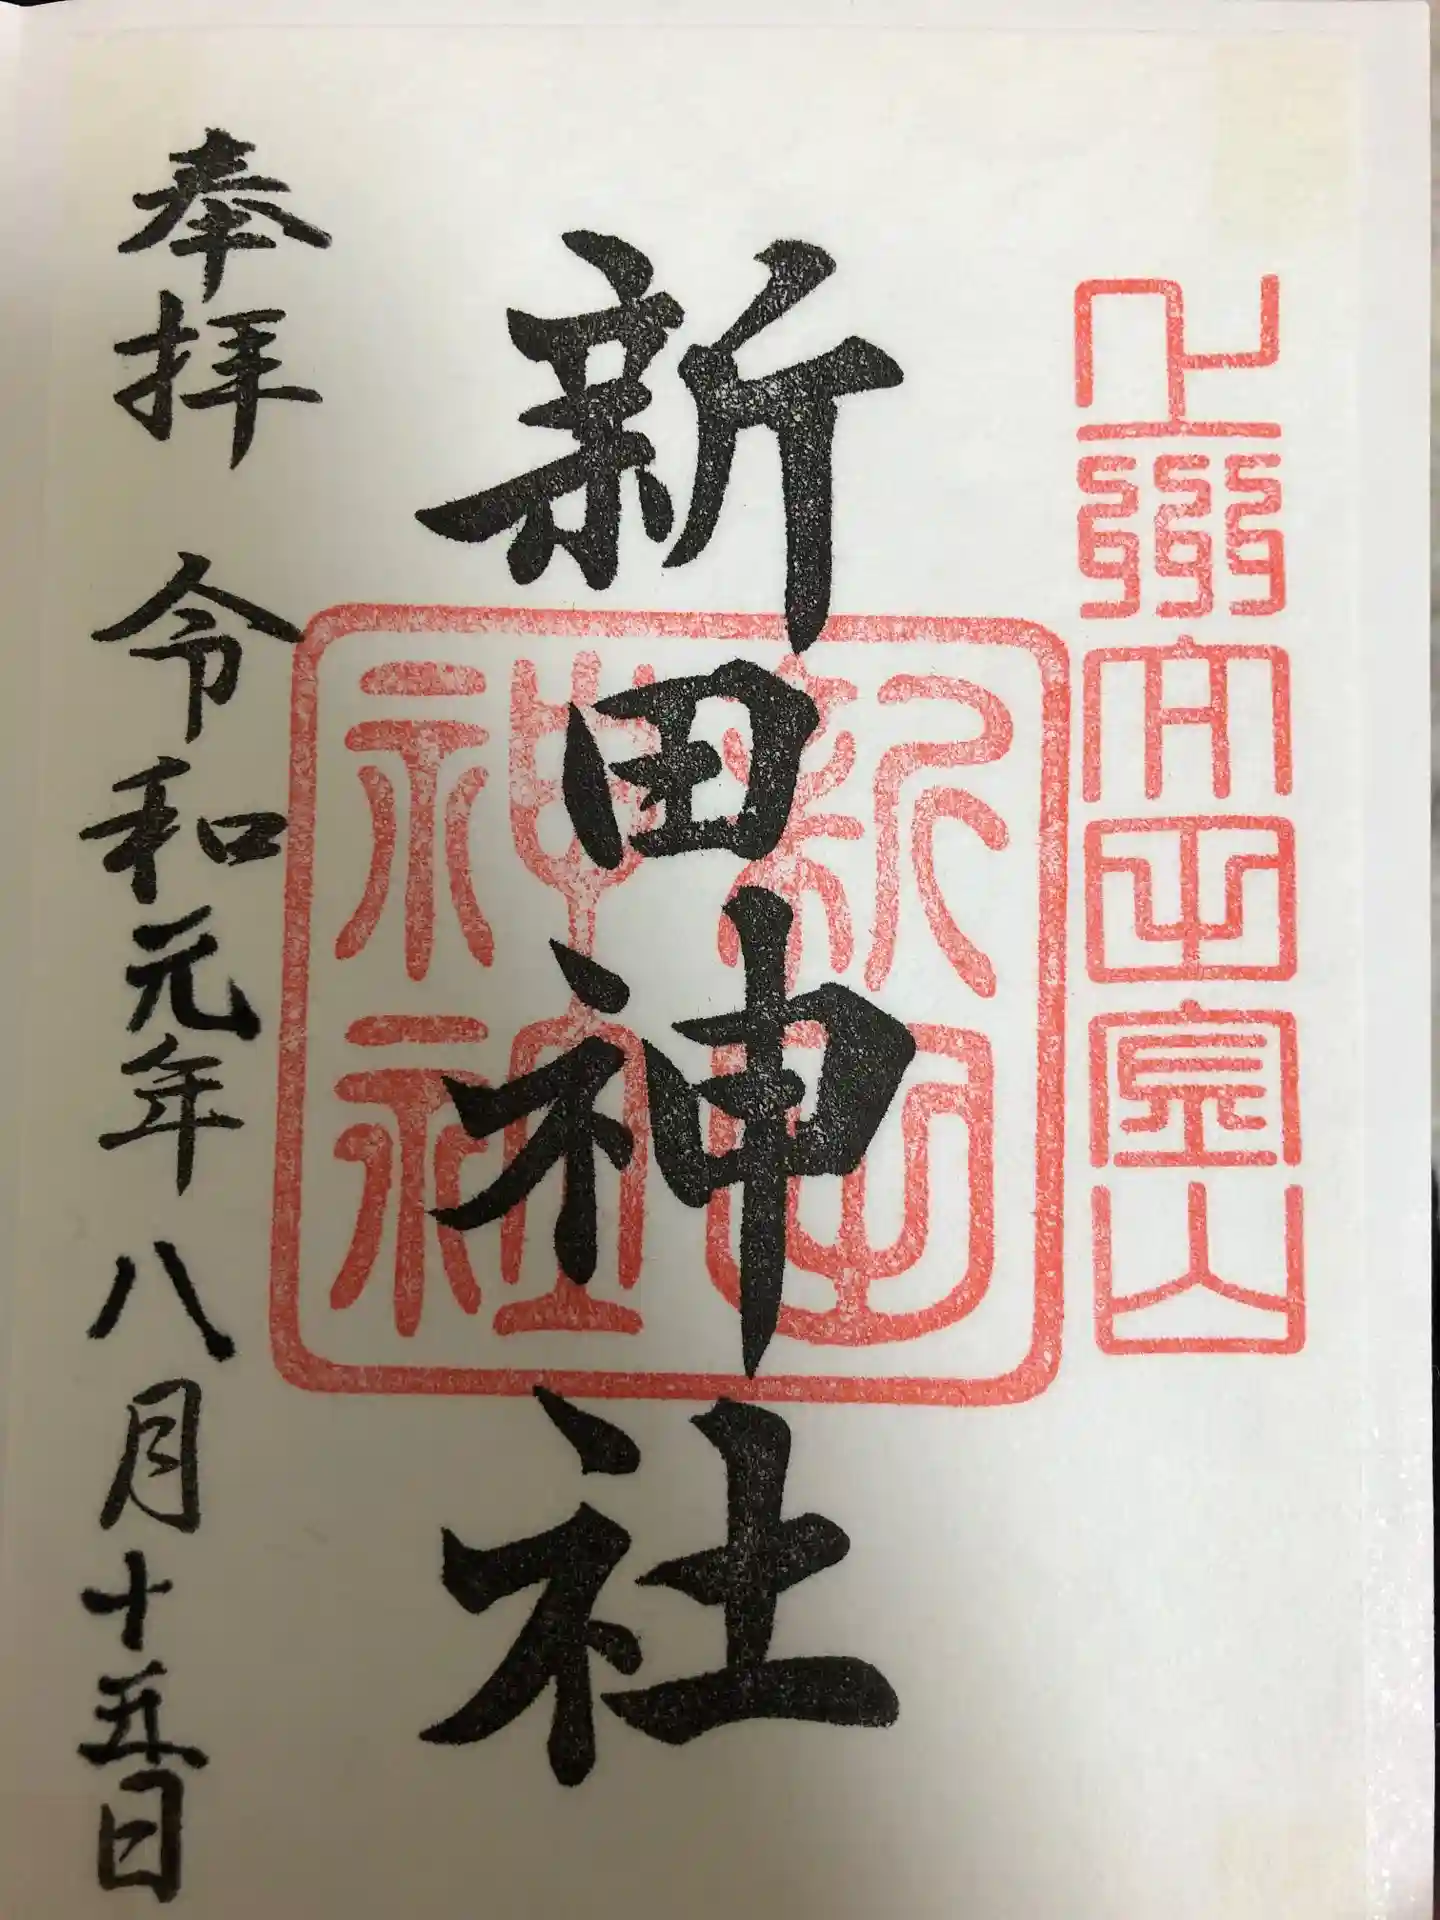 上州太田金山
新田神社
新田
神社
奉拝 令和元年八月十五日